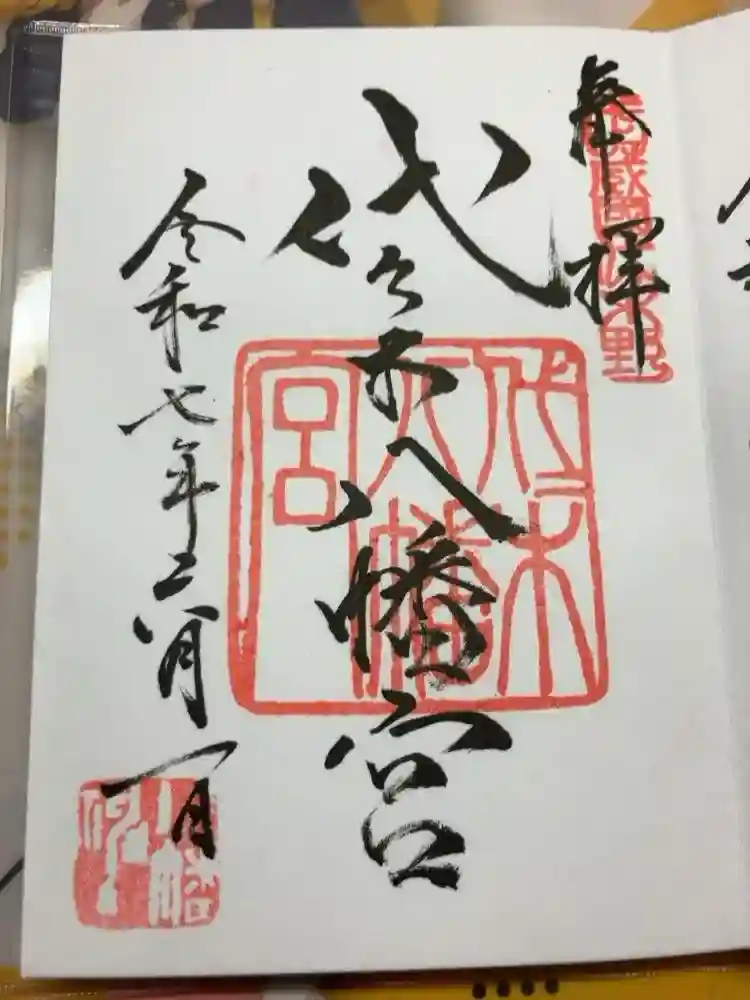 奉拝
代々木八幡宮
代々木
八幡
宮
令和七年六月一日